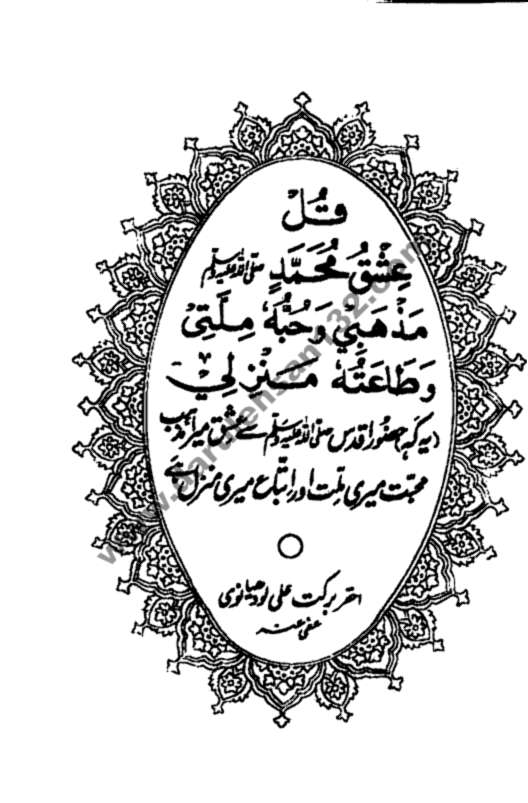 قُلْ
عِشْقُ مُحَمَّدٍ صلی اللہ علیہ وسلم
مَذْهَبِيْ وَحُبُّهٗ مِلَّتِيْ
وَطَاعَتُهٗ مَنْزِلِيْ
(یہ کہ) حضور اقدس صلی اللہ علیہ وسلم سے عشق میرا مذہب
محبت میری ملت اور اتباع میری منزل ہے
احقر برکت علی لودھیانوی
عفی عنہ